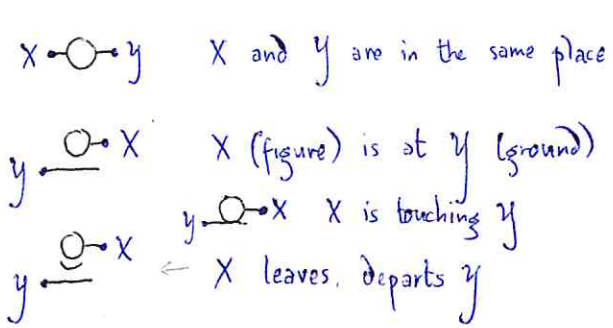 X y X and y are in the same place
X y X (figure) is at y (ground)
y X X is touching y
X y X leaves, departs y